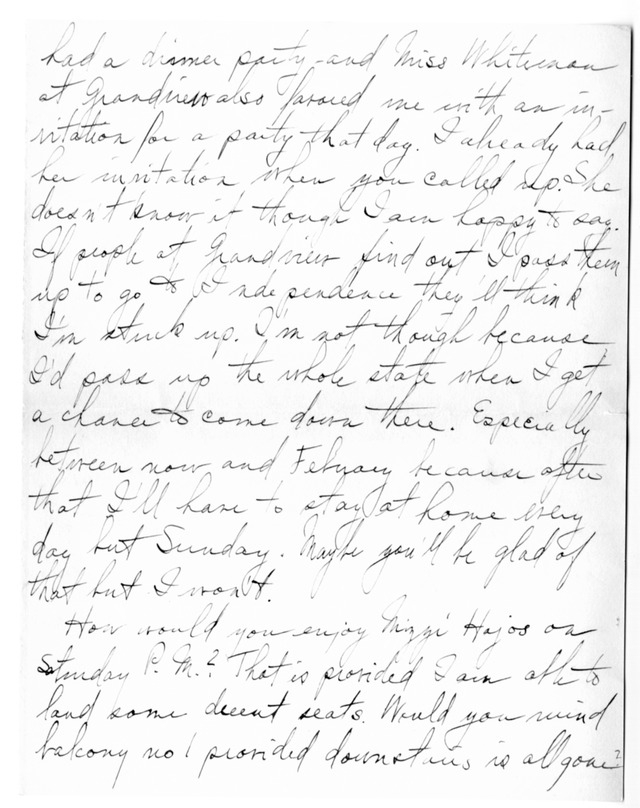 had a dinner party - and Miss Whiteman
at Grandview also favored me with an in-
vitation for a party that day. I already had
her invitation when you called up. She
doesn't know it though I am happy to say.
If people at Grandview find out I pass them
up to go to Independence they'll think
I'm stuck up. I'm not though because
I'd pass up the whole state when I get
a chance to come down there. Especially
between now and February because after
that I'll have to stay at home every
day but Sunday. Maybe you'll be glad of
that but I won't.
How would you enjoy Mizzi Hajos on
Saturday P.M.? That is provided I am able to
land some decent seats. Would you mind
balcony no 1 provided downstairs is all gone?